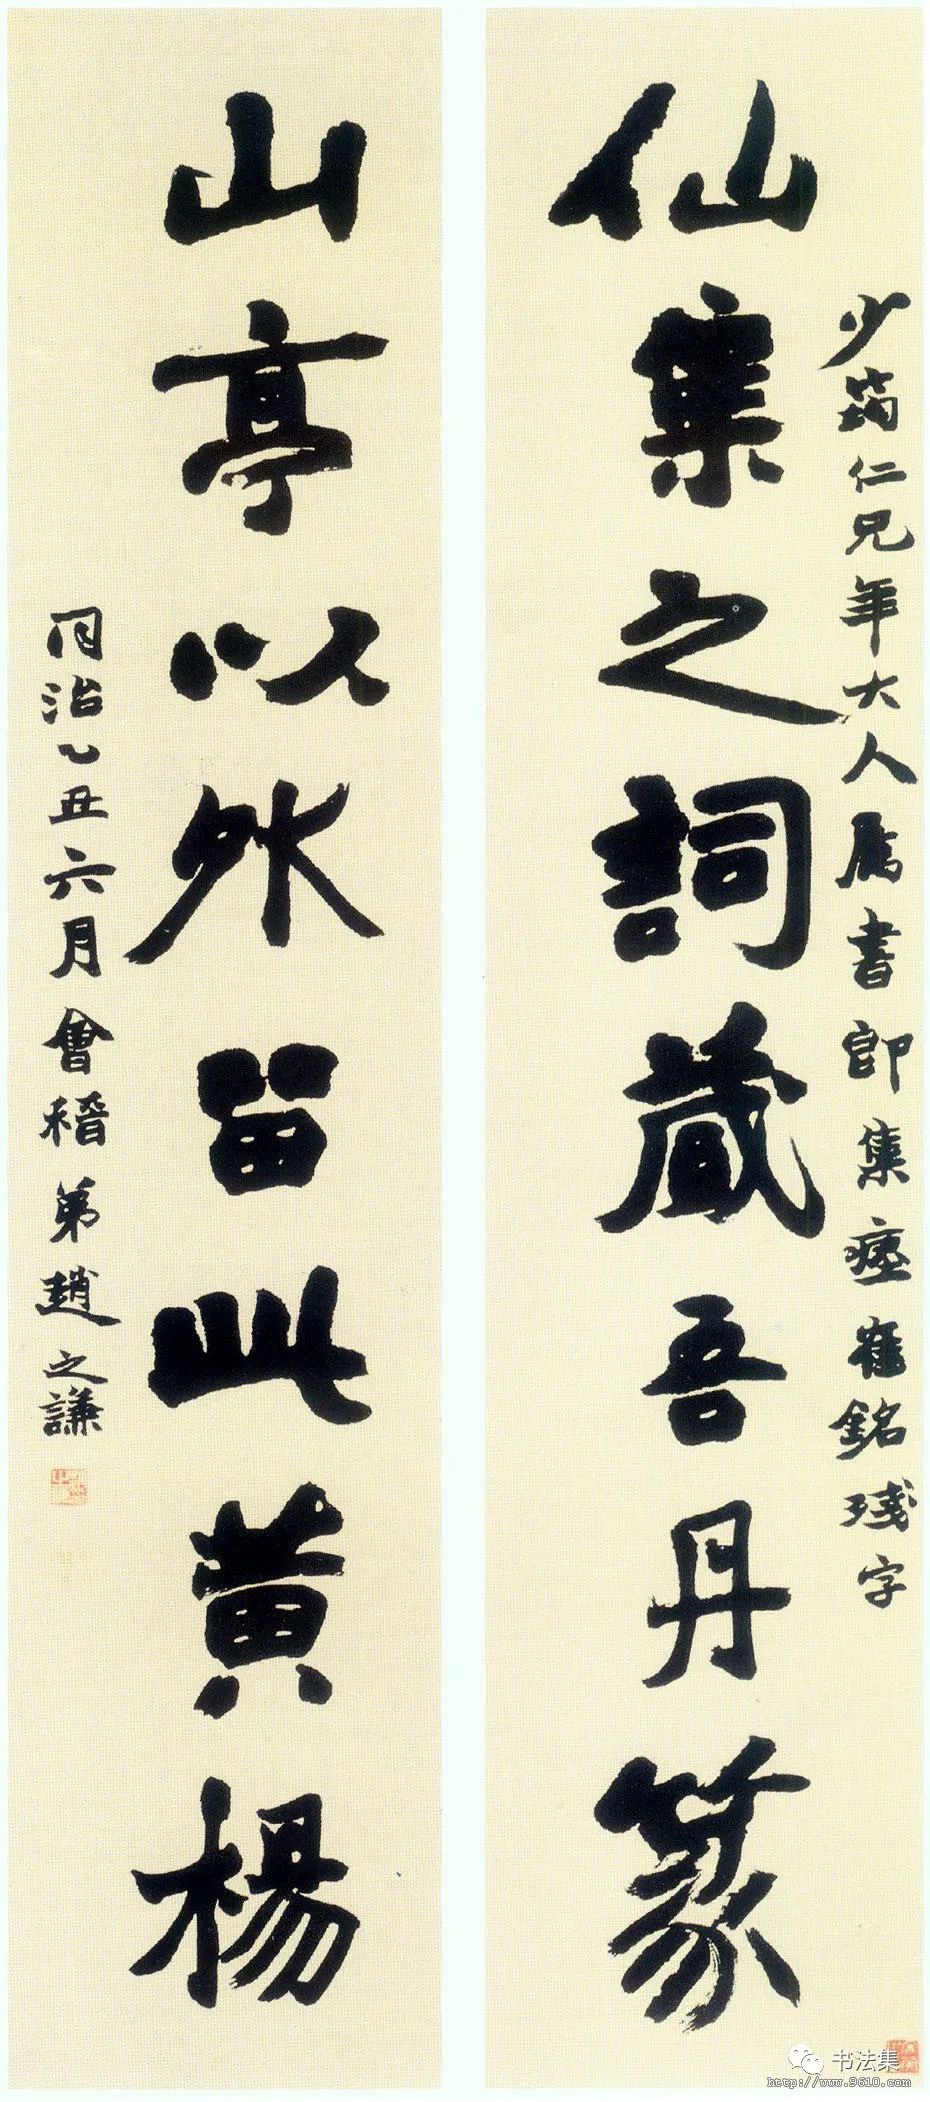 少筠仁兄年大人属書即集瘗雈銘残字
仙集之詞藏吾丹篆
山亭以外畄此黄楊
同治乙丑六月會稽弟趙之謙
书法集
http://www.9610.com